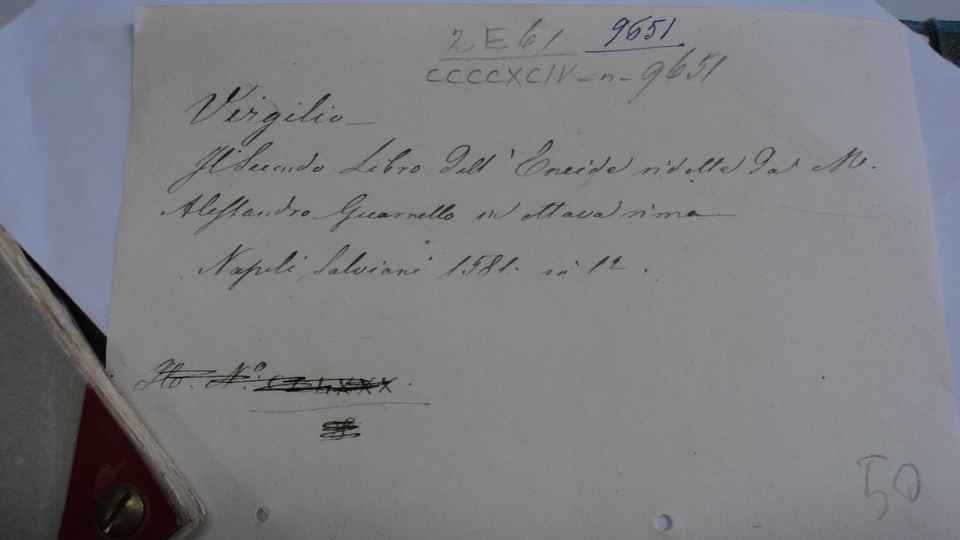 2 E 61 9651
CCCCXCIV - n - 9651
Virgilio
Il Secondo Libro dell' Eneide ridotta da M.
Alessandro Guarnello in ottava rima
Napoli, Salviani 1581. in
N.º
50